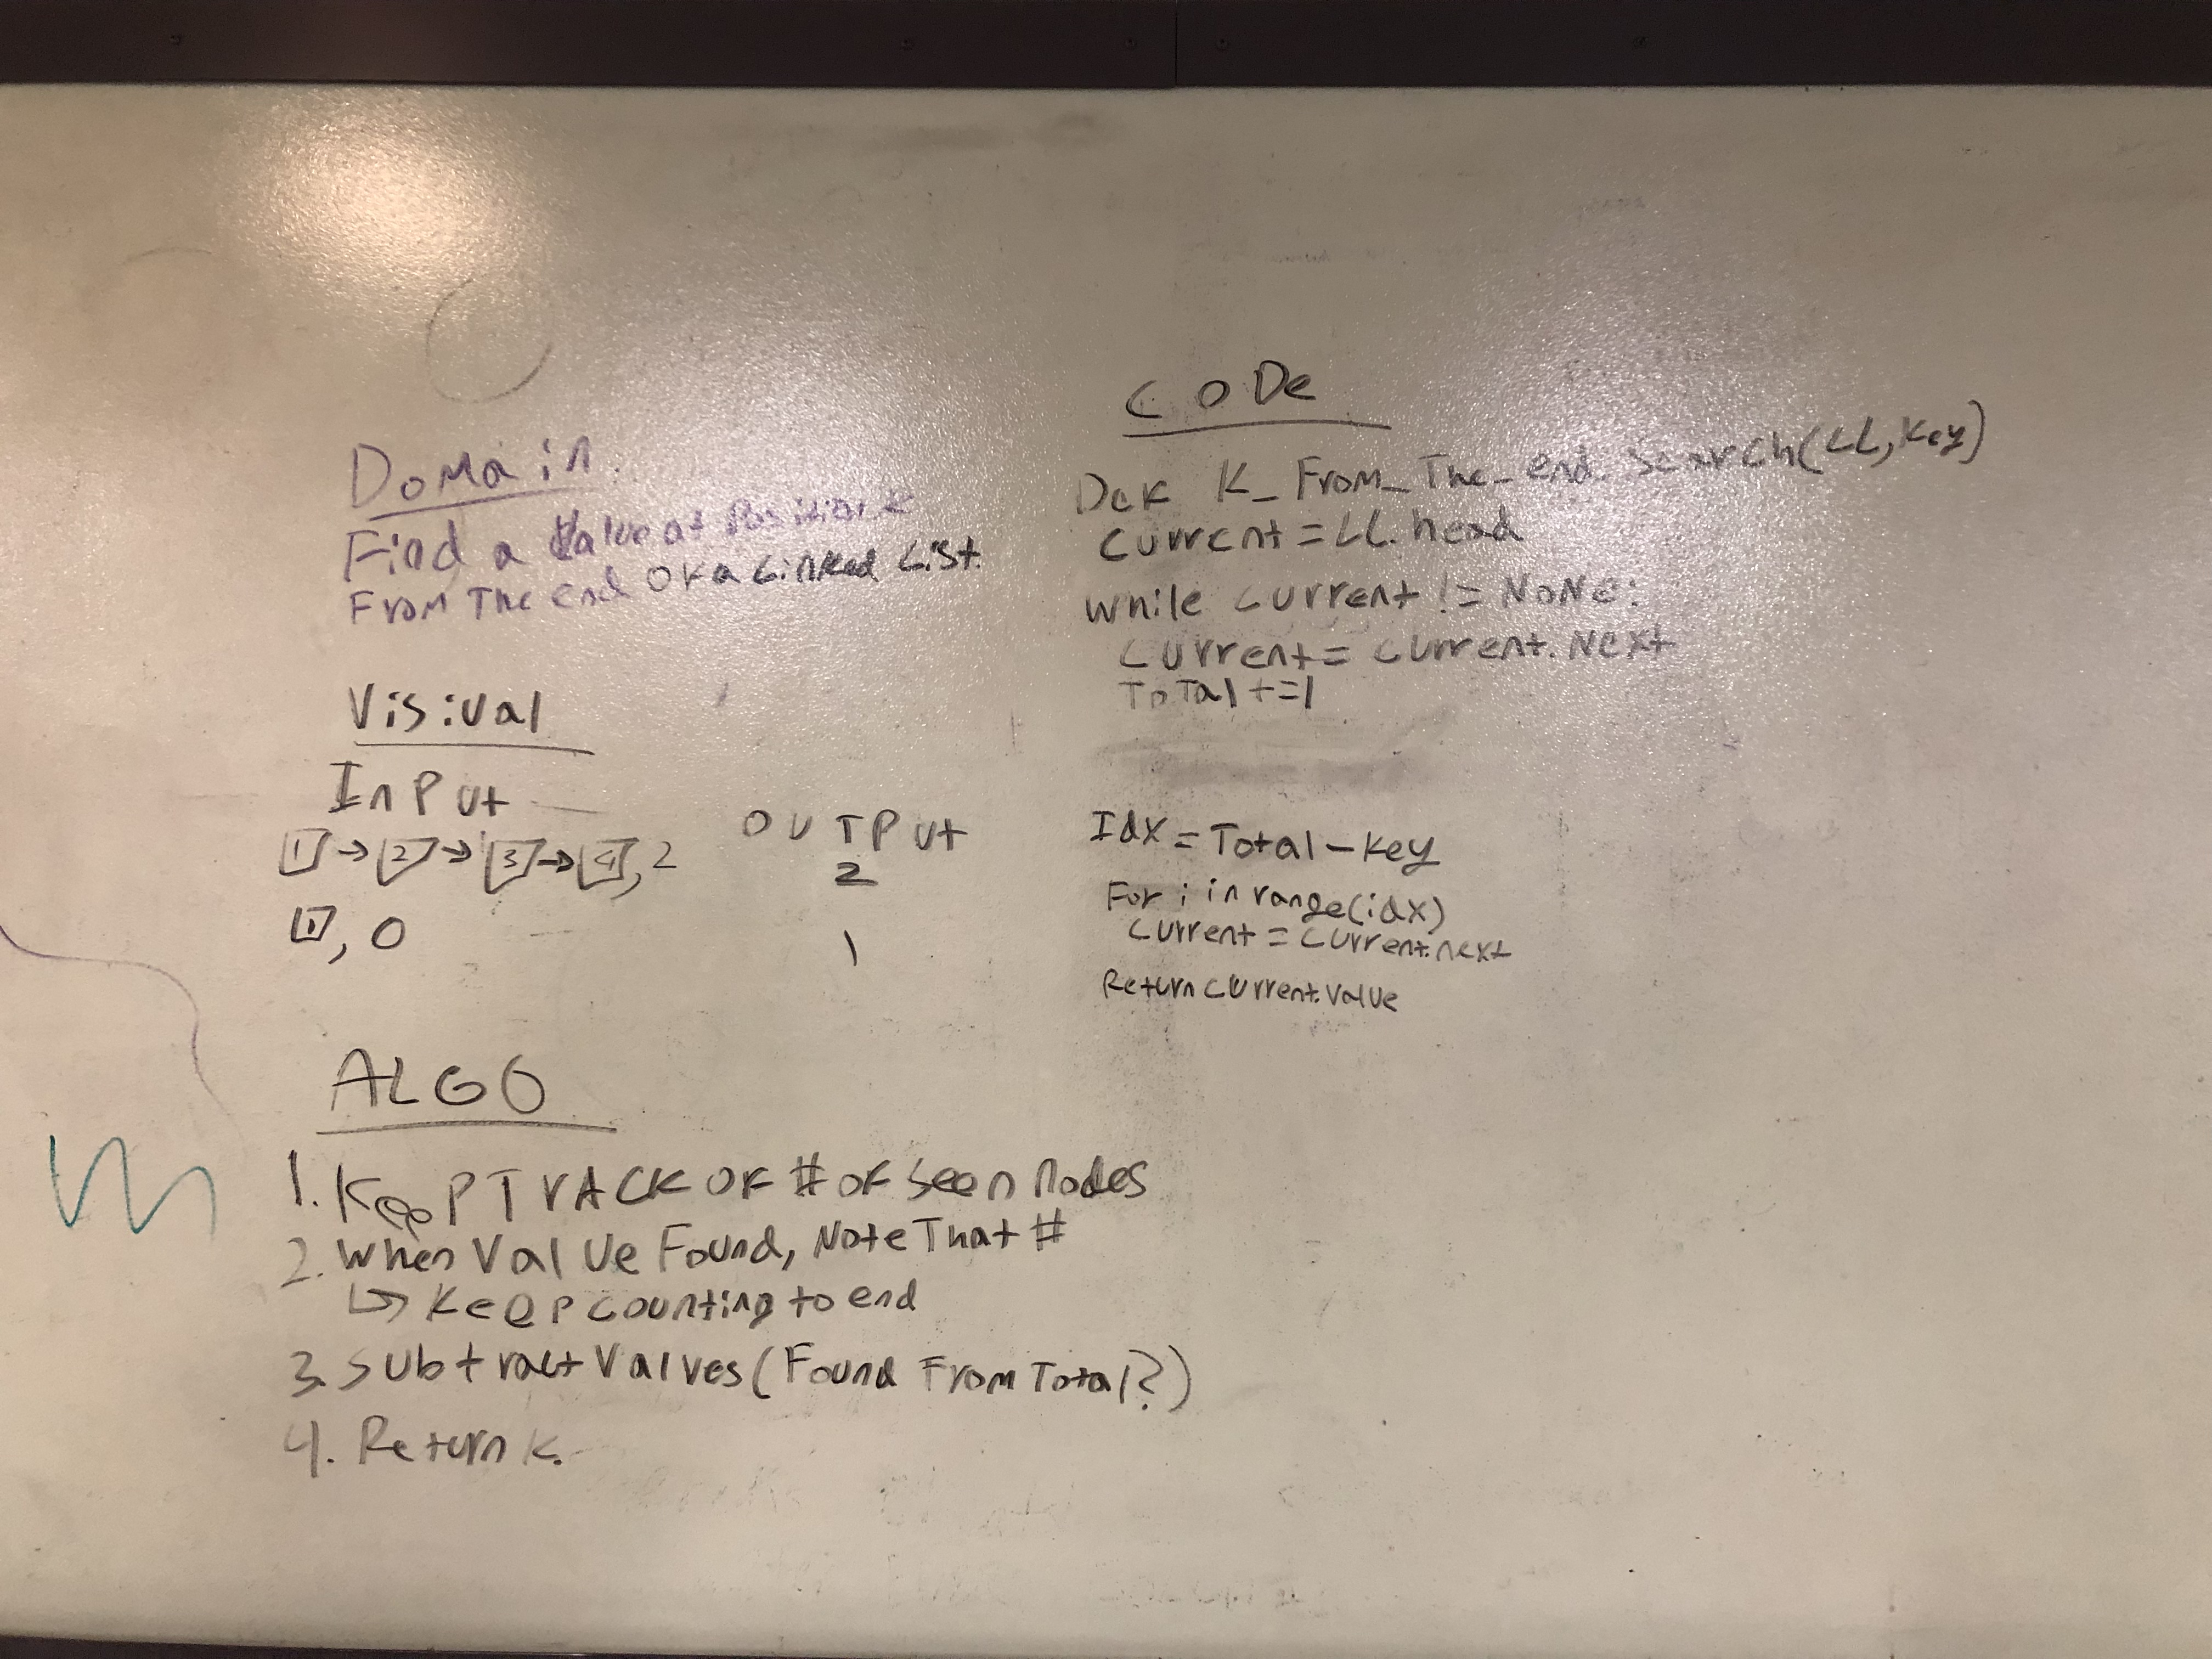 Domain
Find a Value at Position k
From The end OF a Linked List.
Visiual
InPut
1 → 2 → 3 → 4, 2
1, 0
OUTPUt
2
1
ALGO
1. KeepTrACK OF # OF Seen nodes
2. When Value Found, Note That #
↳ Keep counting to end
3. Subtract Values (Found From Total?)
4. Return K.
CODe
DeF K_From_The_end_Search(LL, Key)
Current = LL.head
while current != NoNe:
Current = current.Next
ToTal += 1
Idx = Total - Key
For i in range(idx)
Current = Current.next
Return Current.Value